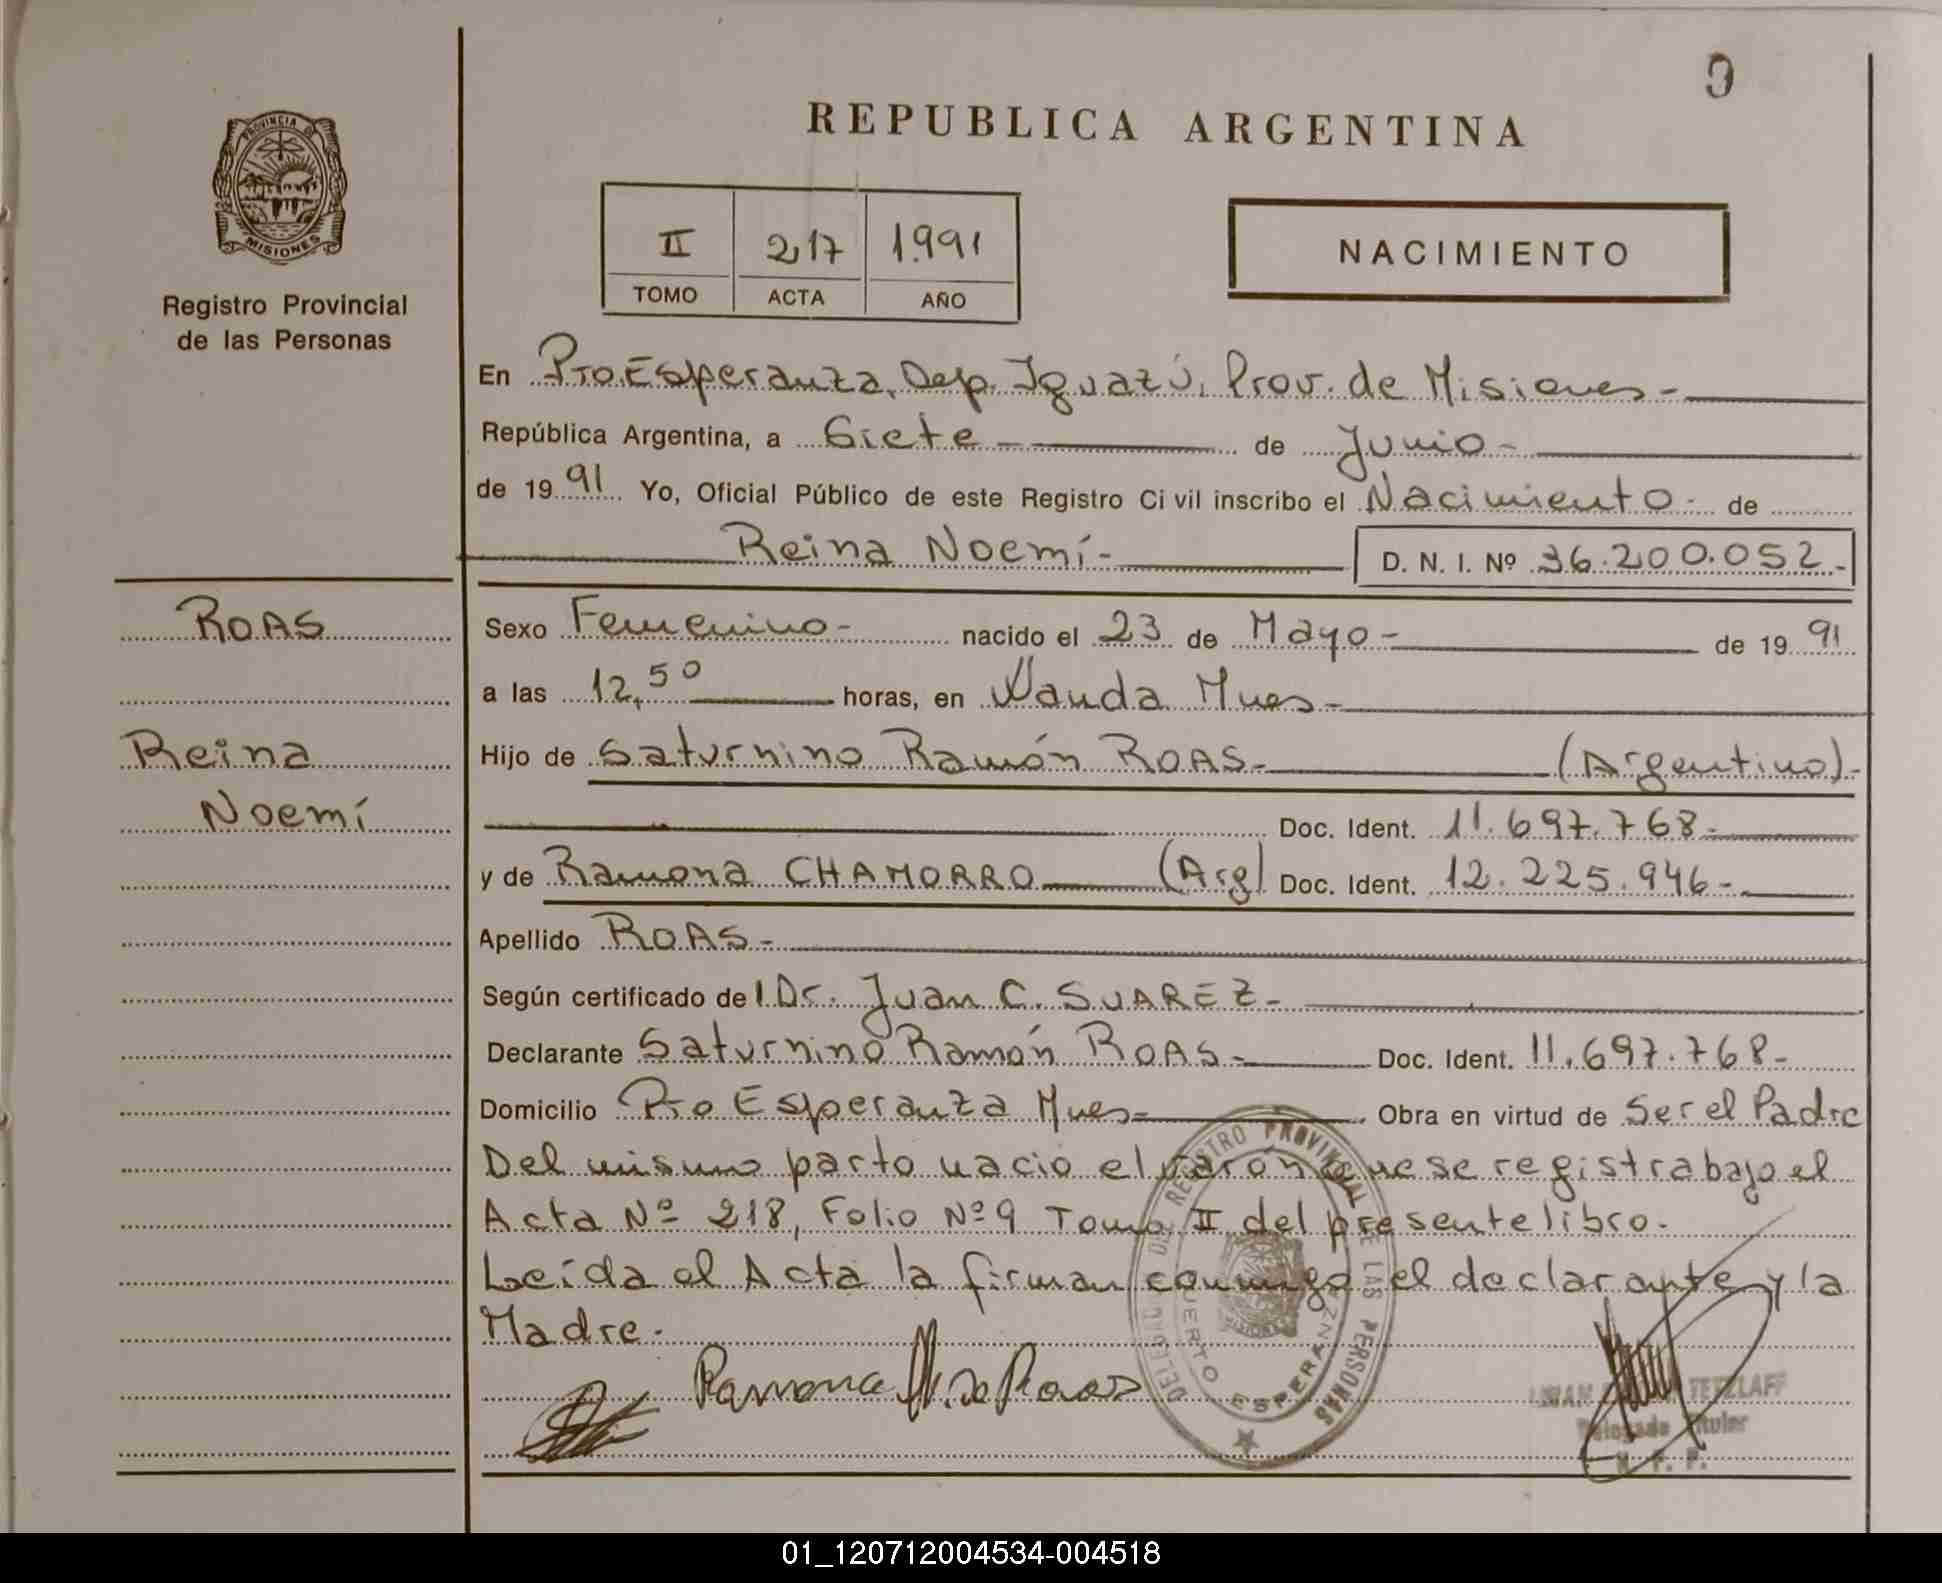 9
REPUBLICA ARGENTINA
PROVINCIA DE
MISIONES
Registro Provincial
de las Personas
II 217 1.991
TOMO ACTA AÑO
NACIMIENTO
En Pto. Esperanza, Dep. Iguazú, Prov. de Misiones-
República Argentina, a Siete- de Junio-
de 1991 Yo, Oficial Público de este Registro Civil inscribo el Nacimiento- de
Reina Noemí- D. N. I. Nº 36.200.052-
ROAS
Reina
Noemí
Sexo Femenino- nacido el 23 de Mayo- de 1991
a las 12,50 horas, en Wanda Mnes-
Hijo de Saturnino Ramón ROAS- (Argentino)-
Doc. Ident. 11.697.768-
y de Ramona CHAMORRO (Arg) Doc. Ident. 12.225.946-
Apellido ROAS-
Según certificado del Dr. Juan C. SUAREZ-
Declarante Saturnino Ramón ROAS- Doc. Ident. 11.697.768-
Domicilio Pto Esperanza Mnes- Obra en virtud de Ser el Padre
Del mismo parto nacio el varón que se registra bajo el
Acta Nº 218, Folio Nº 9 Tomo II del presente libro.
Leída el Acta la firman conmigo el declarante y la
Madre.
Ramona de Roas
DELEGACION DEL REGISTRO PROVINCIAL DE LAS PERSONAS
PUERTO ESPERANZA
TETZLAFF
Delegado Titular
R. P. P.
01_120712004534-004518